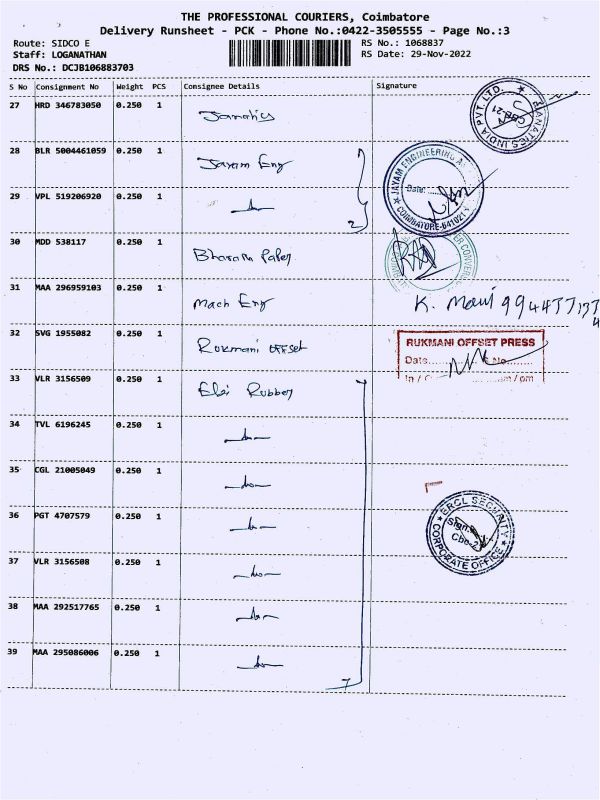 THE PROFESSIONAL COURIERS, Coimbatore
Delivery Runsheet - PCK - Phone No.:0422-3505555 - Page No.:3
Route: SIDCO E
RS No.: 1068837
Staff: LOGANATHAN
RS Date: 29-Nov-2022
DRS No.: DCJB106883703
S No Consignment No Weight PCS Consignee Details Signature
27 HRD 346783050 0.250 1 Janatics
JANATICS INDIA PVT. LTD. CBE-21
28 BLR 5004461059 0.250 1 Jayam Eng
JAYAM ENGINEERING
Date:
COIMBATORE-641021
29 VPL 519206920 0.250 1 -do-
2
30 MDD 538117 0.250 1 Bharam Paper
31 MAA 296959103 0.250 1 Mach Eng K. Mani
32 SVG 1955082 0.250 1 Rukmani offset
RUKMANI OFFSET PRESS
Date....... No.......
In / am / pm
33 VLR 3156509 0.250 1 Elgi Rubber
34 TVL 6196245 0.250 1 -do-
35 CGL 21005049 0.250 1 -do-
36 PGT 4707579 0.250 1 -do-
ERCL SECURITY
Sign.
Cbe-
CORPORATE OFFICE
37 VLR 3156508 0.250 1 -do-
38 MAA 292517765 0.250 1 -do-
39 MAA 295086006 0.250 1 -do-
7